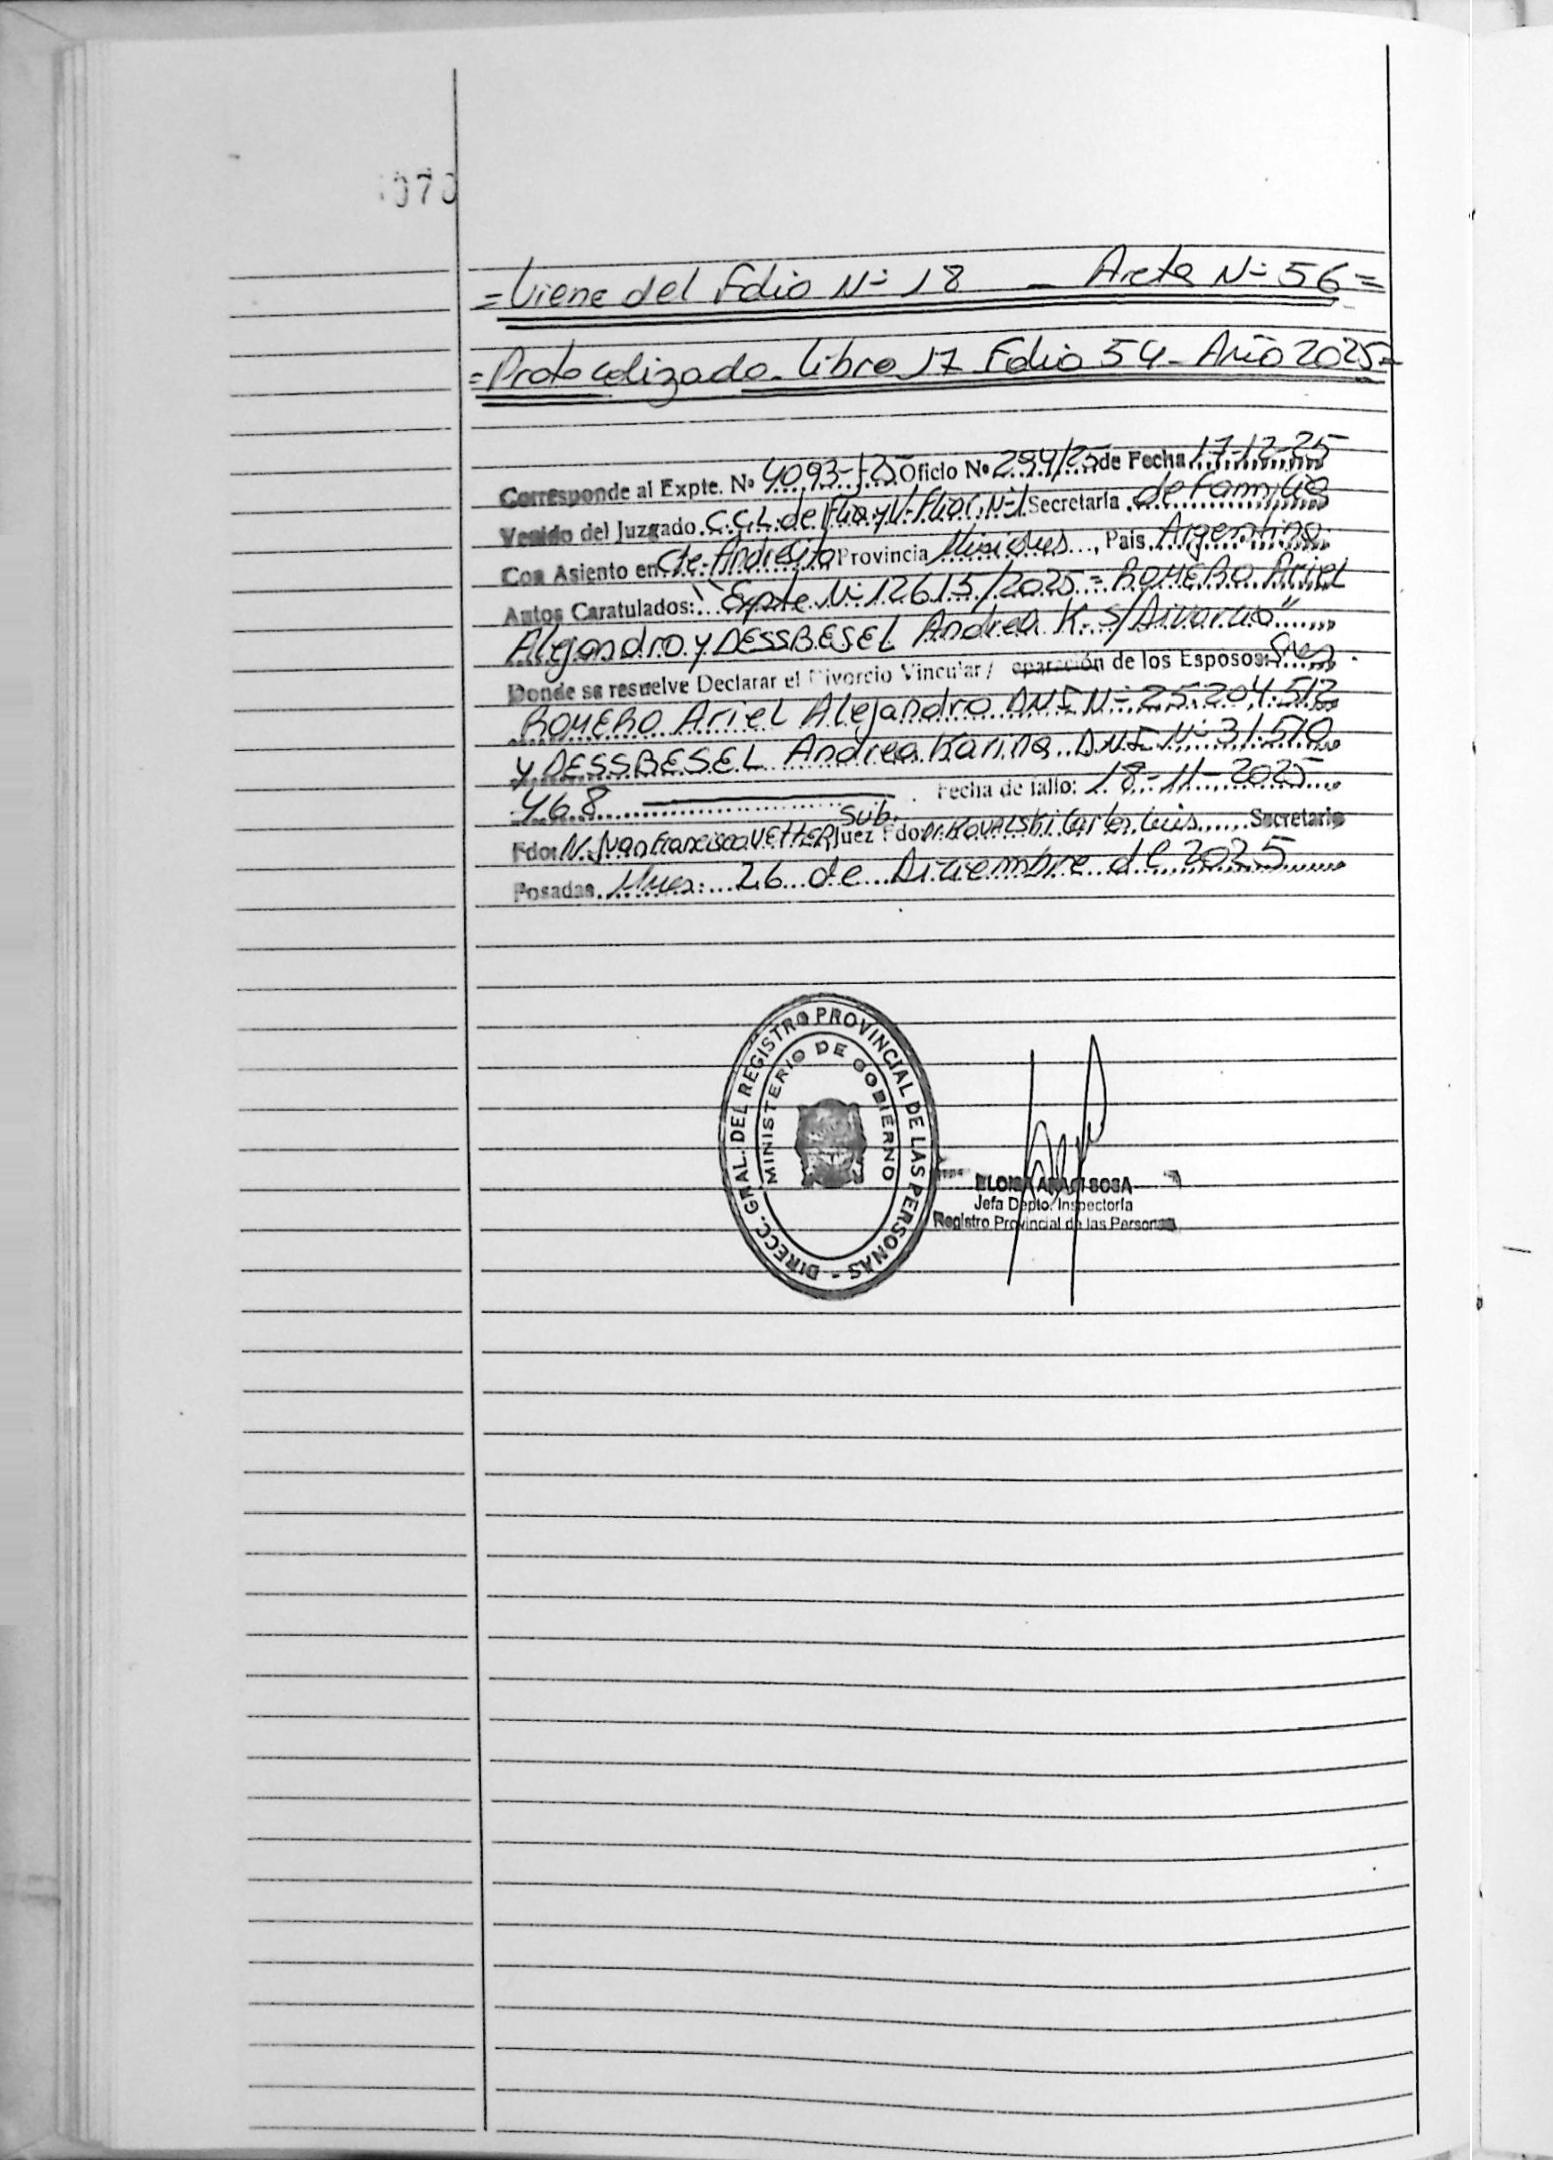 070
= Viene del Folio Nº 18 _ Acta Nº 56 =
= Protocolizado - Libro 17 Folio 54 - Año 2025 =
Corresponde al Expte. Nº 4093-J-25 Oficio Nº 294/25 de Fecha 17-12-25
Venido del Juzgado C.C.L. de Flia y V. Fliar. Nº 1 Secretaría de Familia
Con Asiento en Cte. Andresito Provincia Misiones, País Argentina
Autos Caratulados: "Expte Nº 12615/2025 = ROMERO Ariel
Alejandro y DESSBESEL Andrea K. S/ Divorcio"
Donde se resuelve Declarar el Divorcio Vincular / eparación de los Esposos: Sres
ROMERO Ariel Alejandro DNI Nº 25.204.512
y DESSBESEL Andrea Karina D.N.I. Nº 31.570
468 Fecha de fallo: 18-11-2025
Sub.
Fdo: Juan Francisco VETTER Juez Fdo: Dr. KOVALSKI Carlos Luis Secretario
Posadas, Mnes: 26 de Diciembre de 2025
DIRECC. GRAL. DEL REGISTRO PROVINCIAL DE LAS PERSONAS -
MINISTERIO DE GOBIERNO
SOSA
Jefa Depto. Inspectoría
Registro Provincial de las Personas